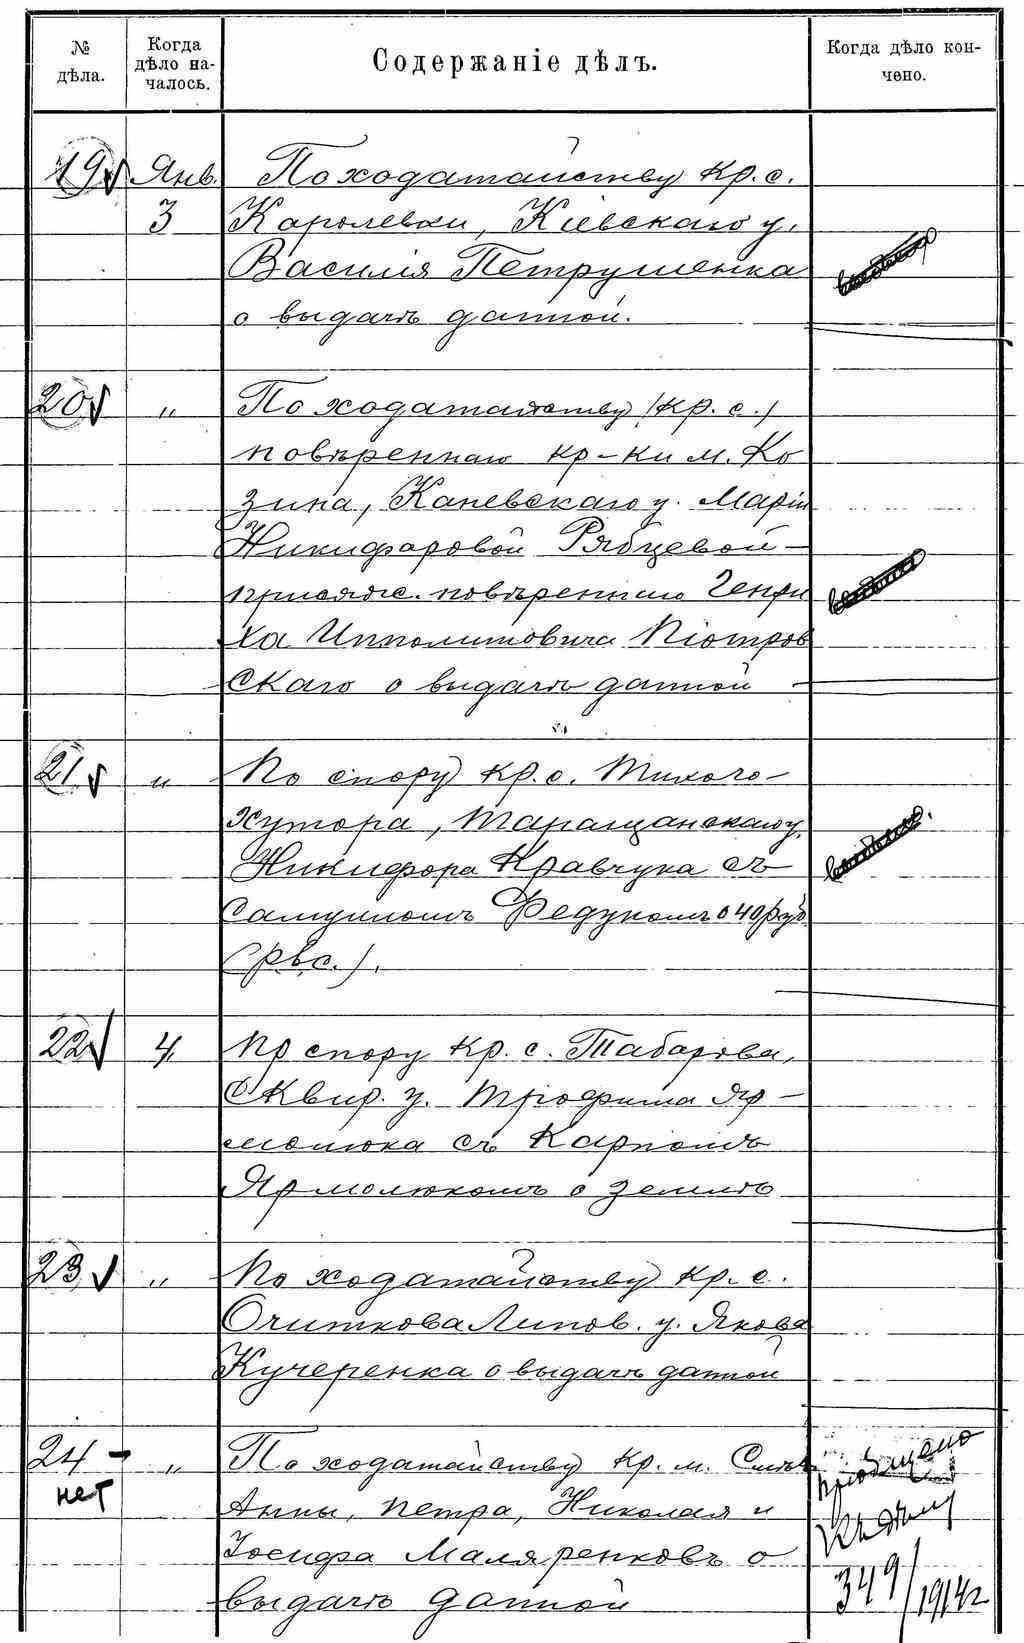 № дѣла.
Когда дѣло на-
чалось.
Содержаніе дѣлъ.
Когда дѣло кон-
чено.
19 Янв. 3
По ходатайству кр. с.
Королевки, Кіевскаго у.
Василія Петрушенка
о выдачѣ данной.
20 "
По ходатайству (кр. с.)
повѣреннаго кр-ки м. Ко
зина, Каневскаго у. Маріи
Никифоровой Рябцевой -
присяжн. повѣреннаго Генри
ха Ипполитовича Піотров
скаго о выдачѣ данной
21 "
По спору кр. с. Тихого-
хутора, Таращанскаго у.
Никифора Кравчука съ
Самуиломъ Федукомъ о 40 руб
22 4.
По спору кр. с. Табарова,
Сквир. у. Трофима Яр-
молюка съ Карпомъ
Ярмолюкомъ о землѣ
23 "
По ходатайству кр. с.
Очиткова Липов. у. Якова
Кучеренка о выдачѣ данной
24 - "
нет
По ходатайству кр. м.
Анны, Петра, Николая и
Іосифа Маляренковъ о
выдачѣ данной
пріобщено
къ дѣлу
349/1914 г